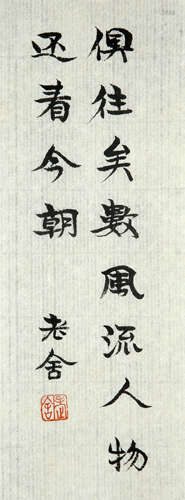 俱往矣數風流人物
还看今朝
老舍
老舍